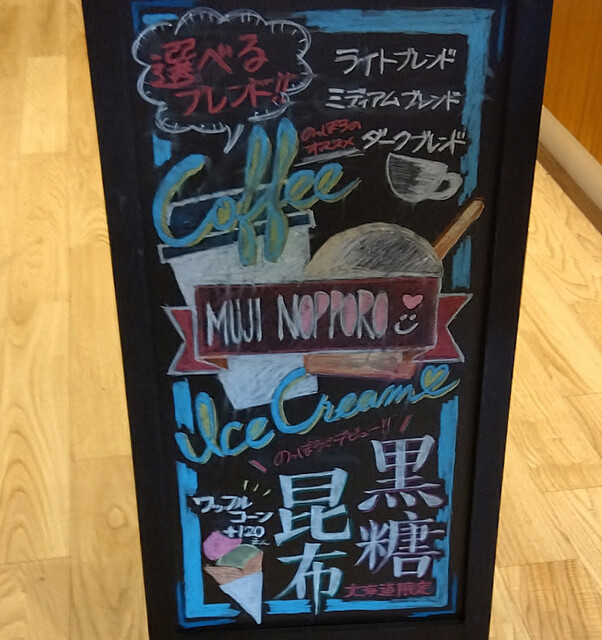 選べる
ブレンド!!
ライトブレンド
ミディアムブレンド
のっぽろの
オススメ
ダークブレンド
Coffee
MUJI NOPPORO
Ice Cream
のっぽろでデビュー!!
黒糖
昆布
北海道限定
ワッフル
コーン
+120